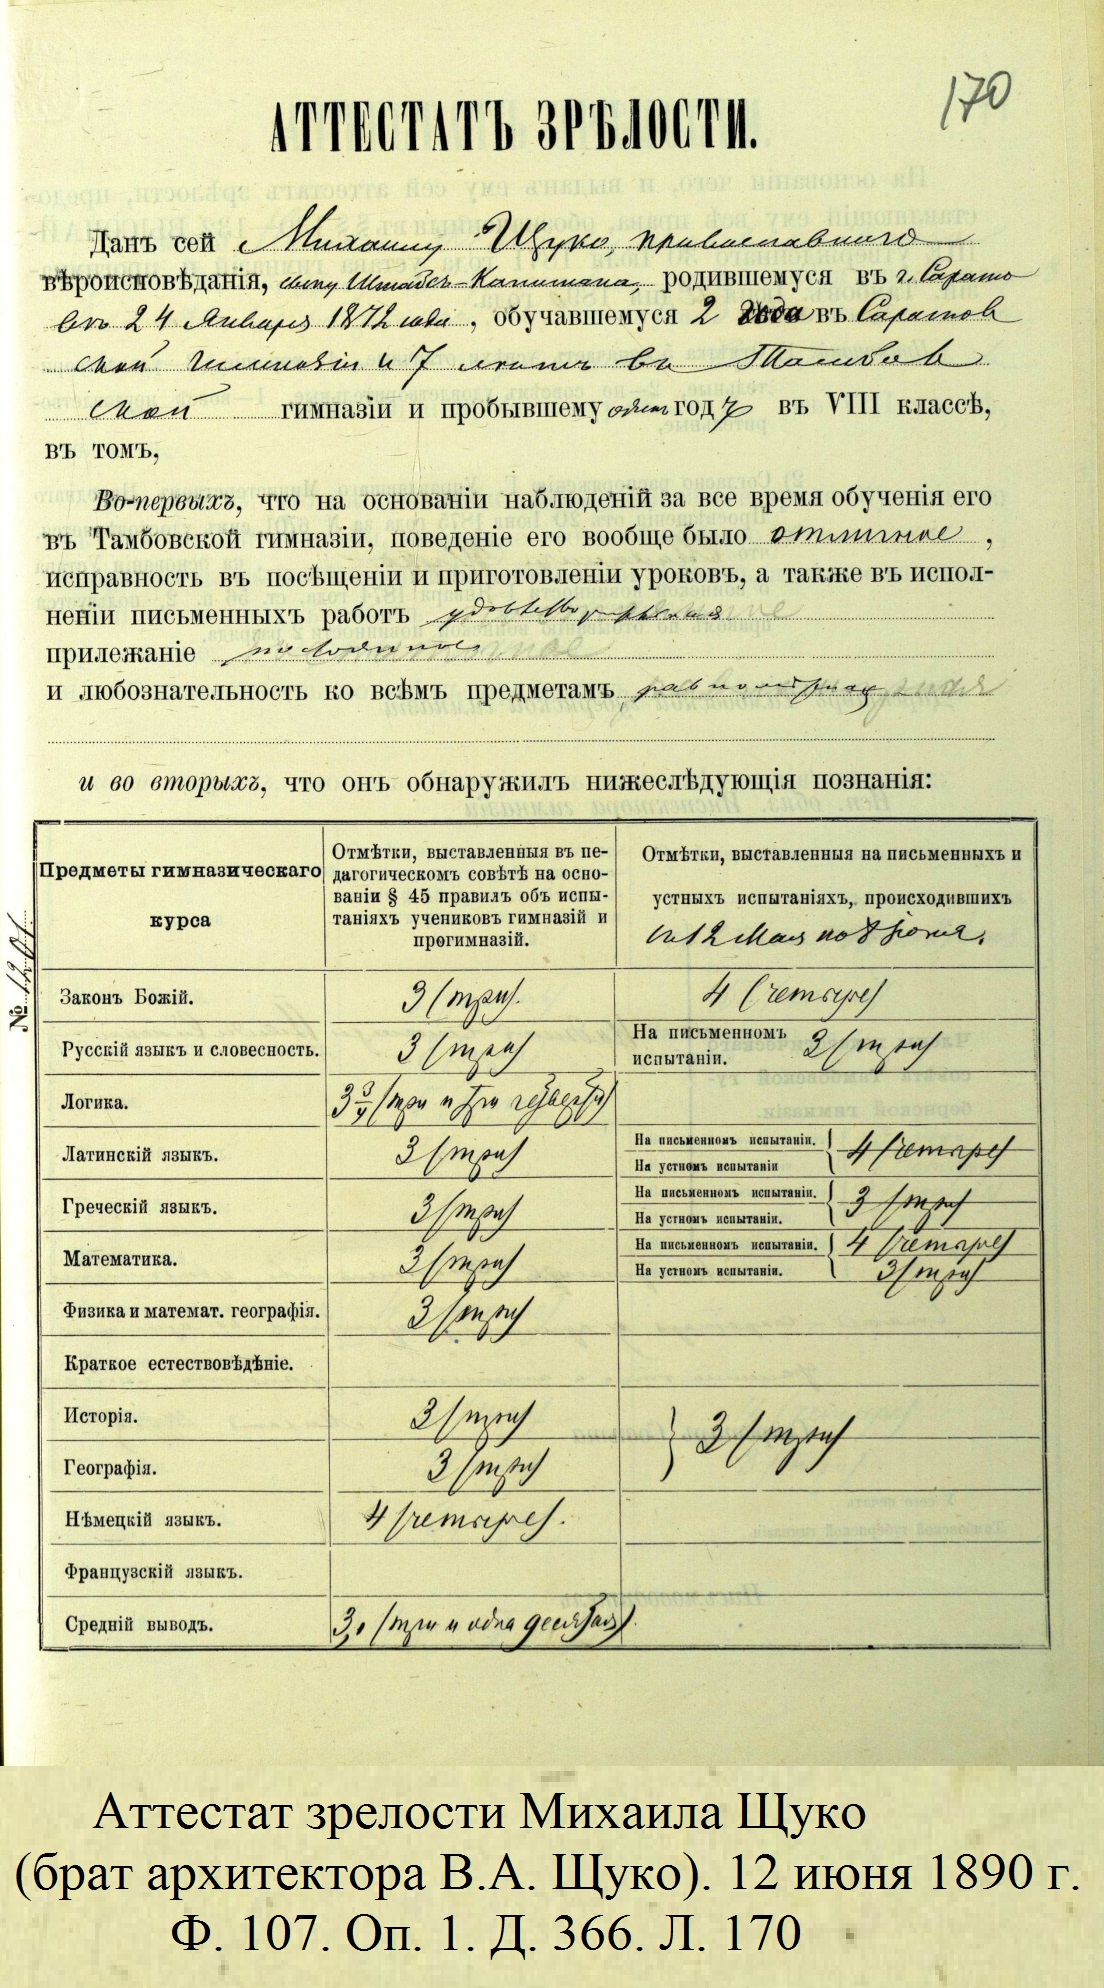 170
АТТЕСТАТЪ ЗРѢЛОСТИ.
Данъ сей Михаилу Щуко, православнаго
вѣроисповѣданія, сыну Штабсъ-Капитана, родившемуся въ г. Сарато
вѣ 24 Января 1872 года, обучавшемуся 2 года въ Саратов
ской гимназіи и 7 лѣтъ въ Тамбов
ской гимназіи и пробывшему одинъ годъ въ VIII классѣ,
въ томъ,
Во-первыхъ, что на основаніи наблюденій за все время обученія его
въ Тамбовской гимназіи, поведеніе его вообще было отличное,
исправность въ посѣщеніи и приготовленіи уроковъ, а также въ испол-
неніи письменныхъ работъ удовлетворительная
прилежаніе постоянное
и любознательность ко всѣмъ предметамъ равномѣрная
и во вторыхъ, что онъ обнаружилъ нижеслѣдующія познанія:
№ 1201.
Предметы гимназическаго курса
Отмѣтки, выставленныя въ пе-
дагогическомъ совѣтѣ на осно-
ваніи § 45 правилъ объ испы-
таніяхъ учениковъ гимназій и
прогимназій.
Отмѣтки, выставленныя на письменныхъ и
устныхъ испытаніяхъ, происходившихъ
съ 12 Мая по 8 Іюня.
Законъ Божій. 3 (три). 4 (четыре)
Русскій языкъ и словесность. 3 (три) На письменномъ испытаніи. 3 (три)
Логика. 3 3/4 (три и три четверти)
Латинскій языкъ. 3 (три) На письменномъ испытаніи. На устномъ испытаніи 4 (четыре)
Греческій языкъ. 3 (три) На письменномъ испытаніи. На устномъ испытаніи. 3 (три)
Математика. 3 (три) На письменномъ испытаніи. 4 (четыре)
На устномъ испытаніи. 3 (три)
Физика и математ. географія. 3 (три)
Краткое естествовѣдѣніе.
Исторія. 3 (три)
Географія. 3 (три) 3 (три)
Нѣмецкій языкъ. 4 (четыре).
Французскій языкъ.
Средній выводъ. 3,1 (три и одна десятая).
Аттестат зрелости Михаила Щуко
(брат архитектора В.А. Щуко). 12 июня 1890 г.
Ф. 107. Оп. 1. Д. 366. Л. 170